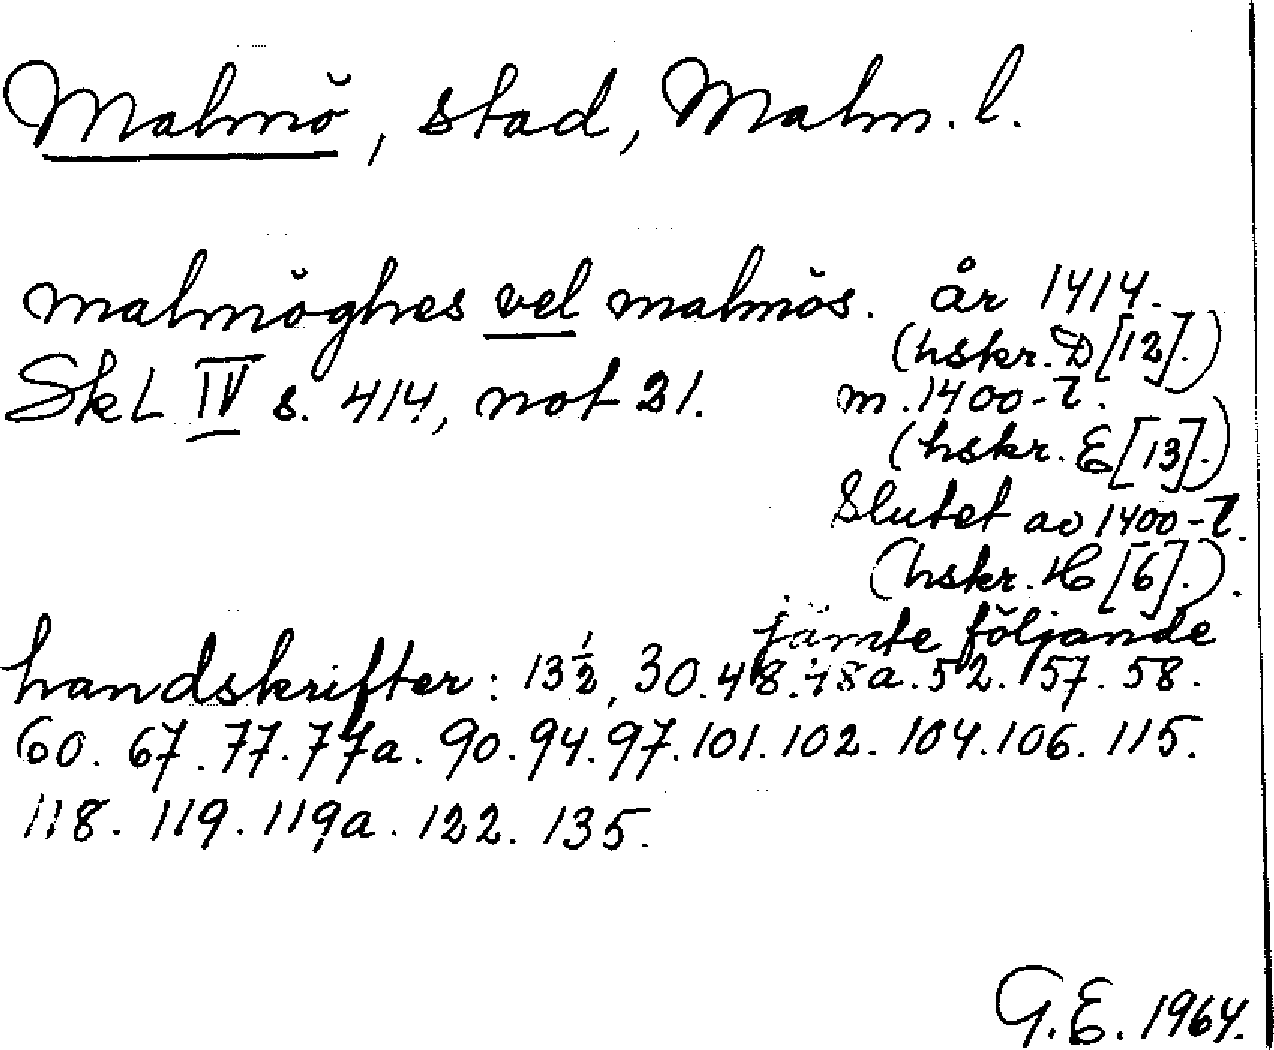 Malmö, stad, Malm. l.
malmöghes vel malmös. år 1414.
(hskr. D [12].)
SkL IV s. 414, not 21. m. 1400-t.
(hskr. E [13].)
Slutet av 1400-t.
(hskr. H [6].).
jämte följande
handskrifter: 13½, 30. 48. 48a. 52. 57. 58.
60. 67. 77. 77a. 90. 94. 97. 101. 102. 104. 106. 115.
118. 119. 119a. 122. 135.
G.E. 1964.